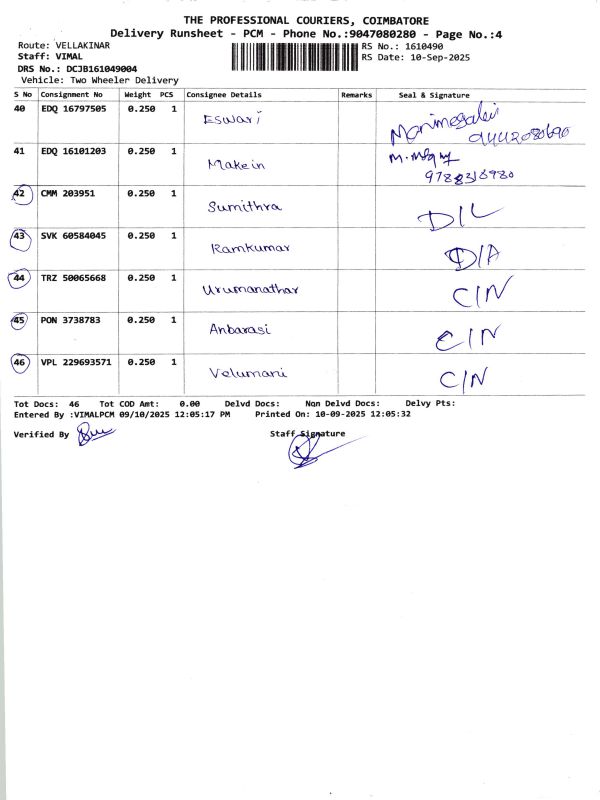 THE PROFESSIONAL COURIERS, COIMBATORE
Delivery Runsheet - PCM - Phone No.:9047080280 - Page No.:4
Route: VELLAKINAR RS No.: 1610490
Staff: VIMAL RS Date: 10-Sep-2025
DRS No.: DCJB161049004
Vehicle: Two Wheeler Delivery
S No Consignment No Weight PCS Consignee Details Remarks Seal & Signature
40 EDQ 16797505 0.250 1 Eswari Manimegalai
9442080690
41 EDQ 16101203 0.250 1 Makein
42 CMM 203951 0.250 1 Sumithra D/L
43 SVK 60584045 0.250 1 Ramkumar D/A
44 TRZ 50065668 0.250 1 Urumanathar C/N
45 PON 3738783 0.250 1 Anbarasi C/N
46 VPL 229693571 0.250 1 Velumani C/N
Tot Docs: 46 Tot COD Amt: 0.00 Delvd Docs: Non Delvd Docs: Delvy Pts:
Entered By :VIMALPCM 09/10/2025 12:05:17 PM Printed On: 10-09-2025 12:05:32
Verified By Staff Signature